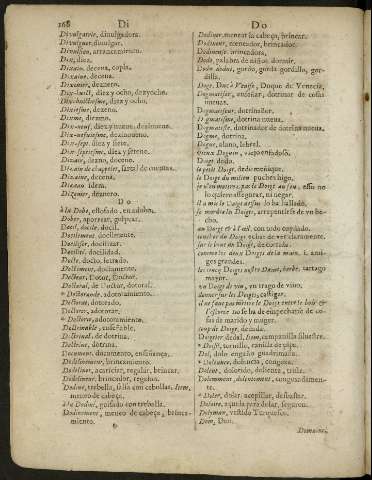 168 Di
Divulgatrie, divulgadora.
Divulguer, divulgar.
Divulsion, arrancamiento.
Dix, diez.
Dixain, decena, copla.
Dixaine, decena.
Dixenier, deznero.
Dix-huict, diez y ocho, dezyocho.
Dix-huictiesme, diez y ocho,
Dixiesme, dezeno.
Dixme, diezmo.
Dix-neuf, diez y nueve, deziñueve.
Dix-neufiesme, dezinoueno.
Dix-sept, diez y siete.
Dix-septiesme, diez y seteno.
Dizain, dezno, deceno.
Dizain de chapelet, sartal de cuentas.
Dizaine, decena.
Dizeau idem.
Dizenier, deznero.
Do
à la Dobe, estofado, en adobo.
Dober, aporrear, golpear.
Docil, docile, docil.
Docilement, docilmente.
Dociliser, docilizar.
Docilité, docilidad.
Docte, docto, letrado.
Doctement, doctamente.
Docteur, Dotor, Doctor.
Doctoral, de Doctor, dotoral.
Doctorande, adotoramiento.
Doctorat, dotorado.
Doctorer, adotorar.
Doctrine, adotoramiento.
Doctrinable, enseñable.
Doctrinal, de dotrina,
Doctrine, dotrina.
Document, documento, enseñança,
Dodelinement, brincamiento.
Dodeliner, acariciar, regalar, brincar.
Dodelineur, brincador, regalon.
Dodine, trebolla, salsa con cebollas, Item,
meneo de cabeça.
à la Dodine, guisado con trebolla.
Dodinement, meneo de cabeça, brinca-
miento.
Do
Dodiner, menear la cabeça, brincar.
Dodineur, meneador, brincador.
Dodineuse, brincadora.
Dodo, palabra de niños, dormir.
Dodu, dodue, gordo, gorda gordillo, gor-
dilla.
Doge, Duc à Venise, Duque de Venecia.
Dogmatiser, enseñar, dotrinar de cosas
nuevas.
Dogmatiseur, dotrinador.
Dogmatisme, dotrina nueva.
Dogmatiste, dotrinador de dotrina nueva.
Dogme, dotrina.
Dogue, alano, lebrel.
vieux Doguin,
Doigt dedo.
le petit Doigt, dedo meñique.
le Doigt du milieu puches higo.
je n'en mettrois pas le Doigt au feu, esso no
lo quiero assegurar, ni negar.
Il a mis le Doigt dessus, lo ha hallado.
se mordre les Doigts, arrepentirse de un he-
cho.
au Doigt & à l'œil, con todo cuydado.
toucher du Doigt, echar de ver claramente.
sur le bout du Doigt, de corrida.
comme les deux Doigts de la main, i. ami-
gos grandes.
les cinq Doigts notre Dame, herbe, tartago
mayor.
un Doigt de vin, un trago de vino.
donner sur les Doigts, castigar.
il ne faut pas mettre le Doigt entre le bois &
l'escorce no se ha de empacharse de co-
sas de marido y muger.
coup de Doigt, dedada.
Doigtier dedal, Item, campanilla silvestre.
Doisil, tornillo, canilla de pipa.
Dol, dolo engaño quadrimaña.
Doleance, dolencia, congoxa.
Dolent, dolorido, doliente, triste.
Dolemment, dolentement, congoxadamen-
te.
Doler, dolar, acepillar, desbastar.
Doloire, açuela para dolar, segurón.
Dolyman, vestido Turquesco.
Dom, Don.
Domaine,